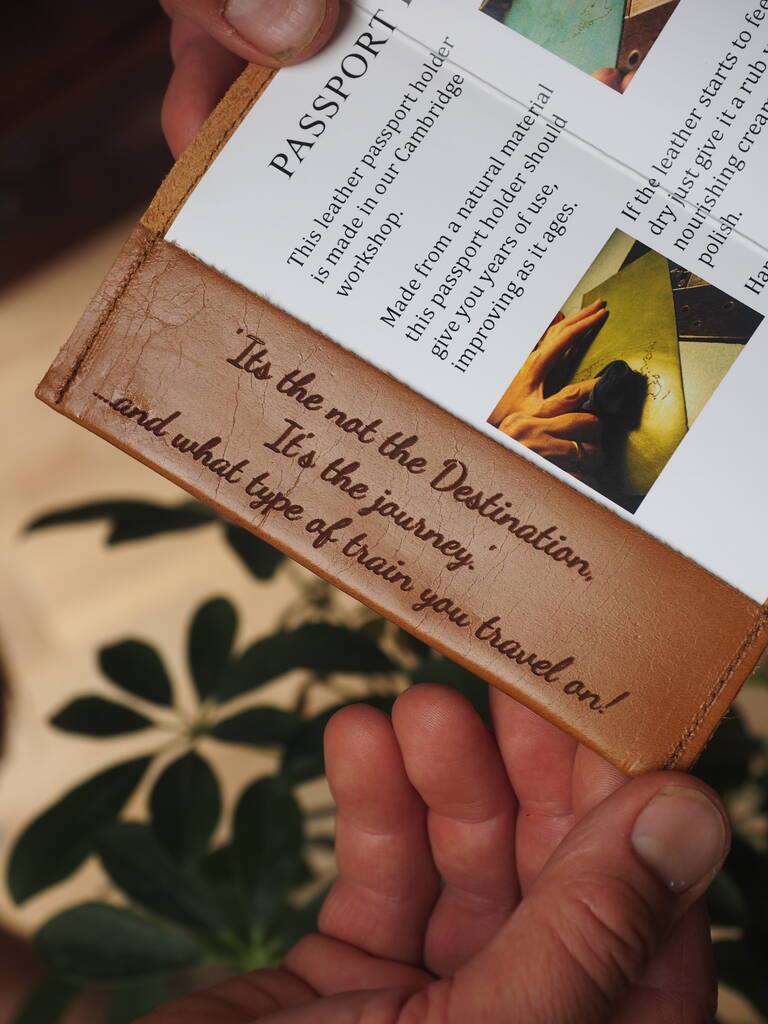 PASSPORT
This leather passport holder
is made in our Cambridge
workshop.
Made from a natural material
this passport holder should
give you years of use,
improving as it ages.
If the leather starts to fee
dry just give it a rub
nourishing crea
polish.
Har
'Its the not the Destination,
It's the journey.'
...and what type of train you travel on!